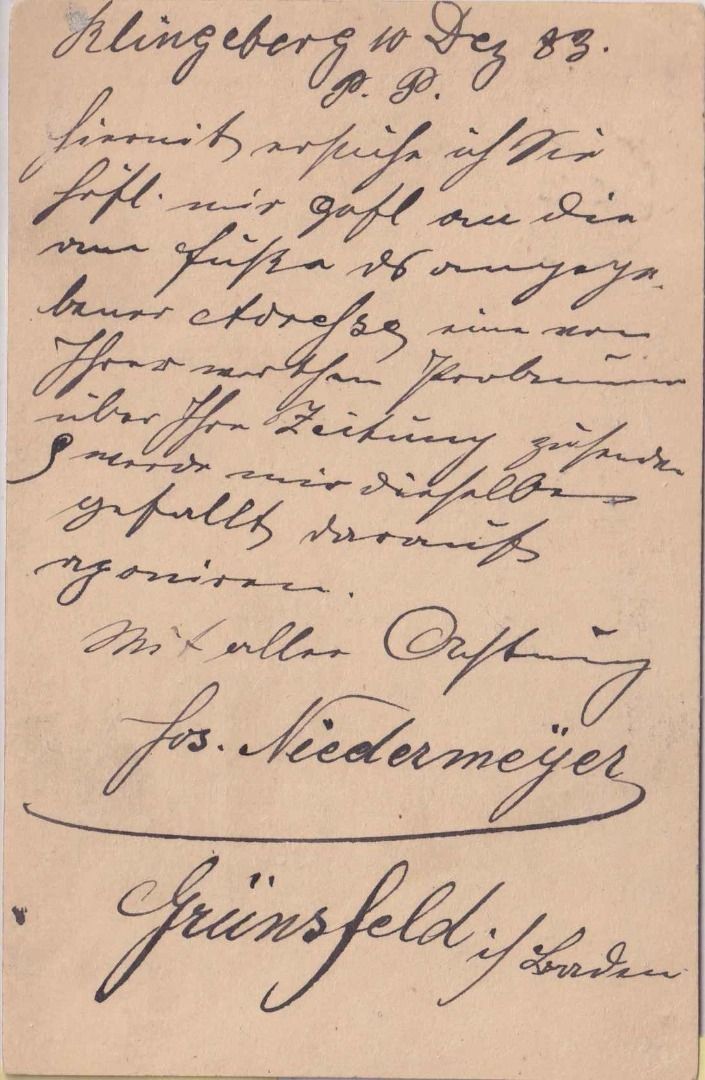 Klingeberg 10 Dez 83.
P. P.
Hiermit ersuche ich Sie
höfl. mir gefl an die
am Fuße ds angege-
bener Adresse eine von
Ihrer werthen Probenum
über Ihre Zeitung zusenden
werde mir dieselbe
gefällt darauf
Mit aller Achtung
Jos. Niedermeyer
Grünsfeld i/ Baden